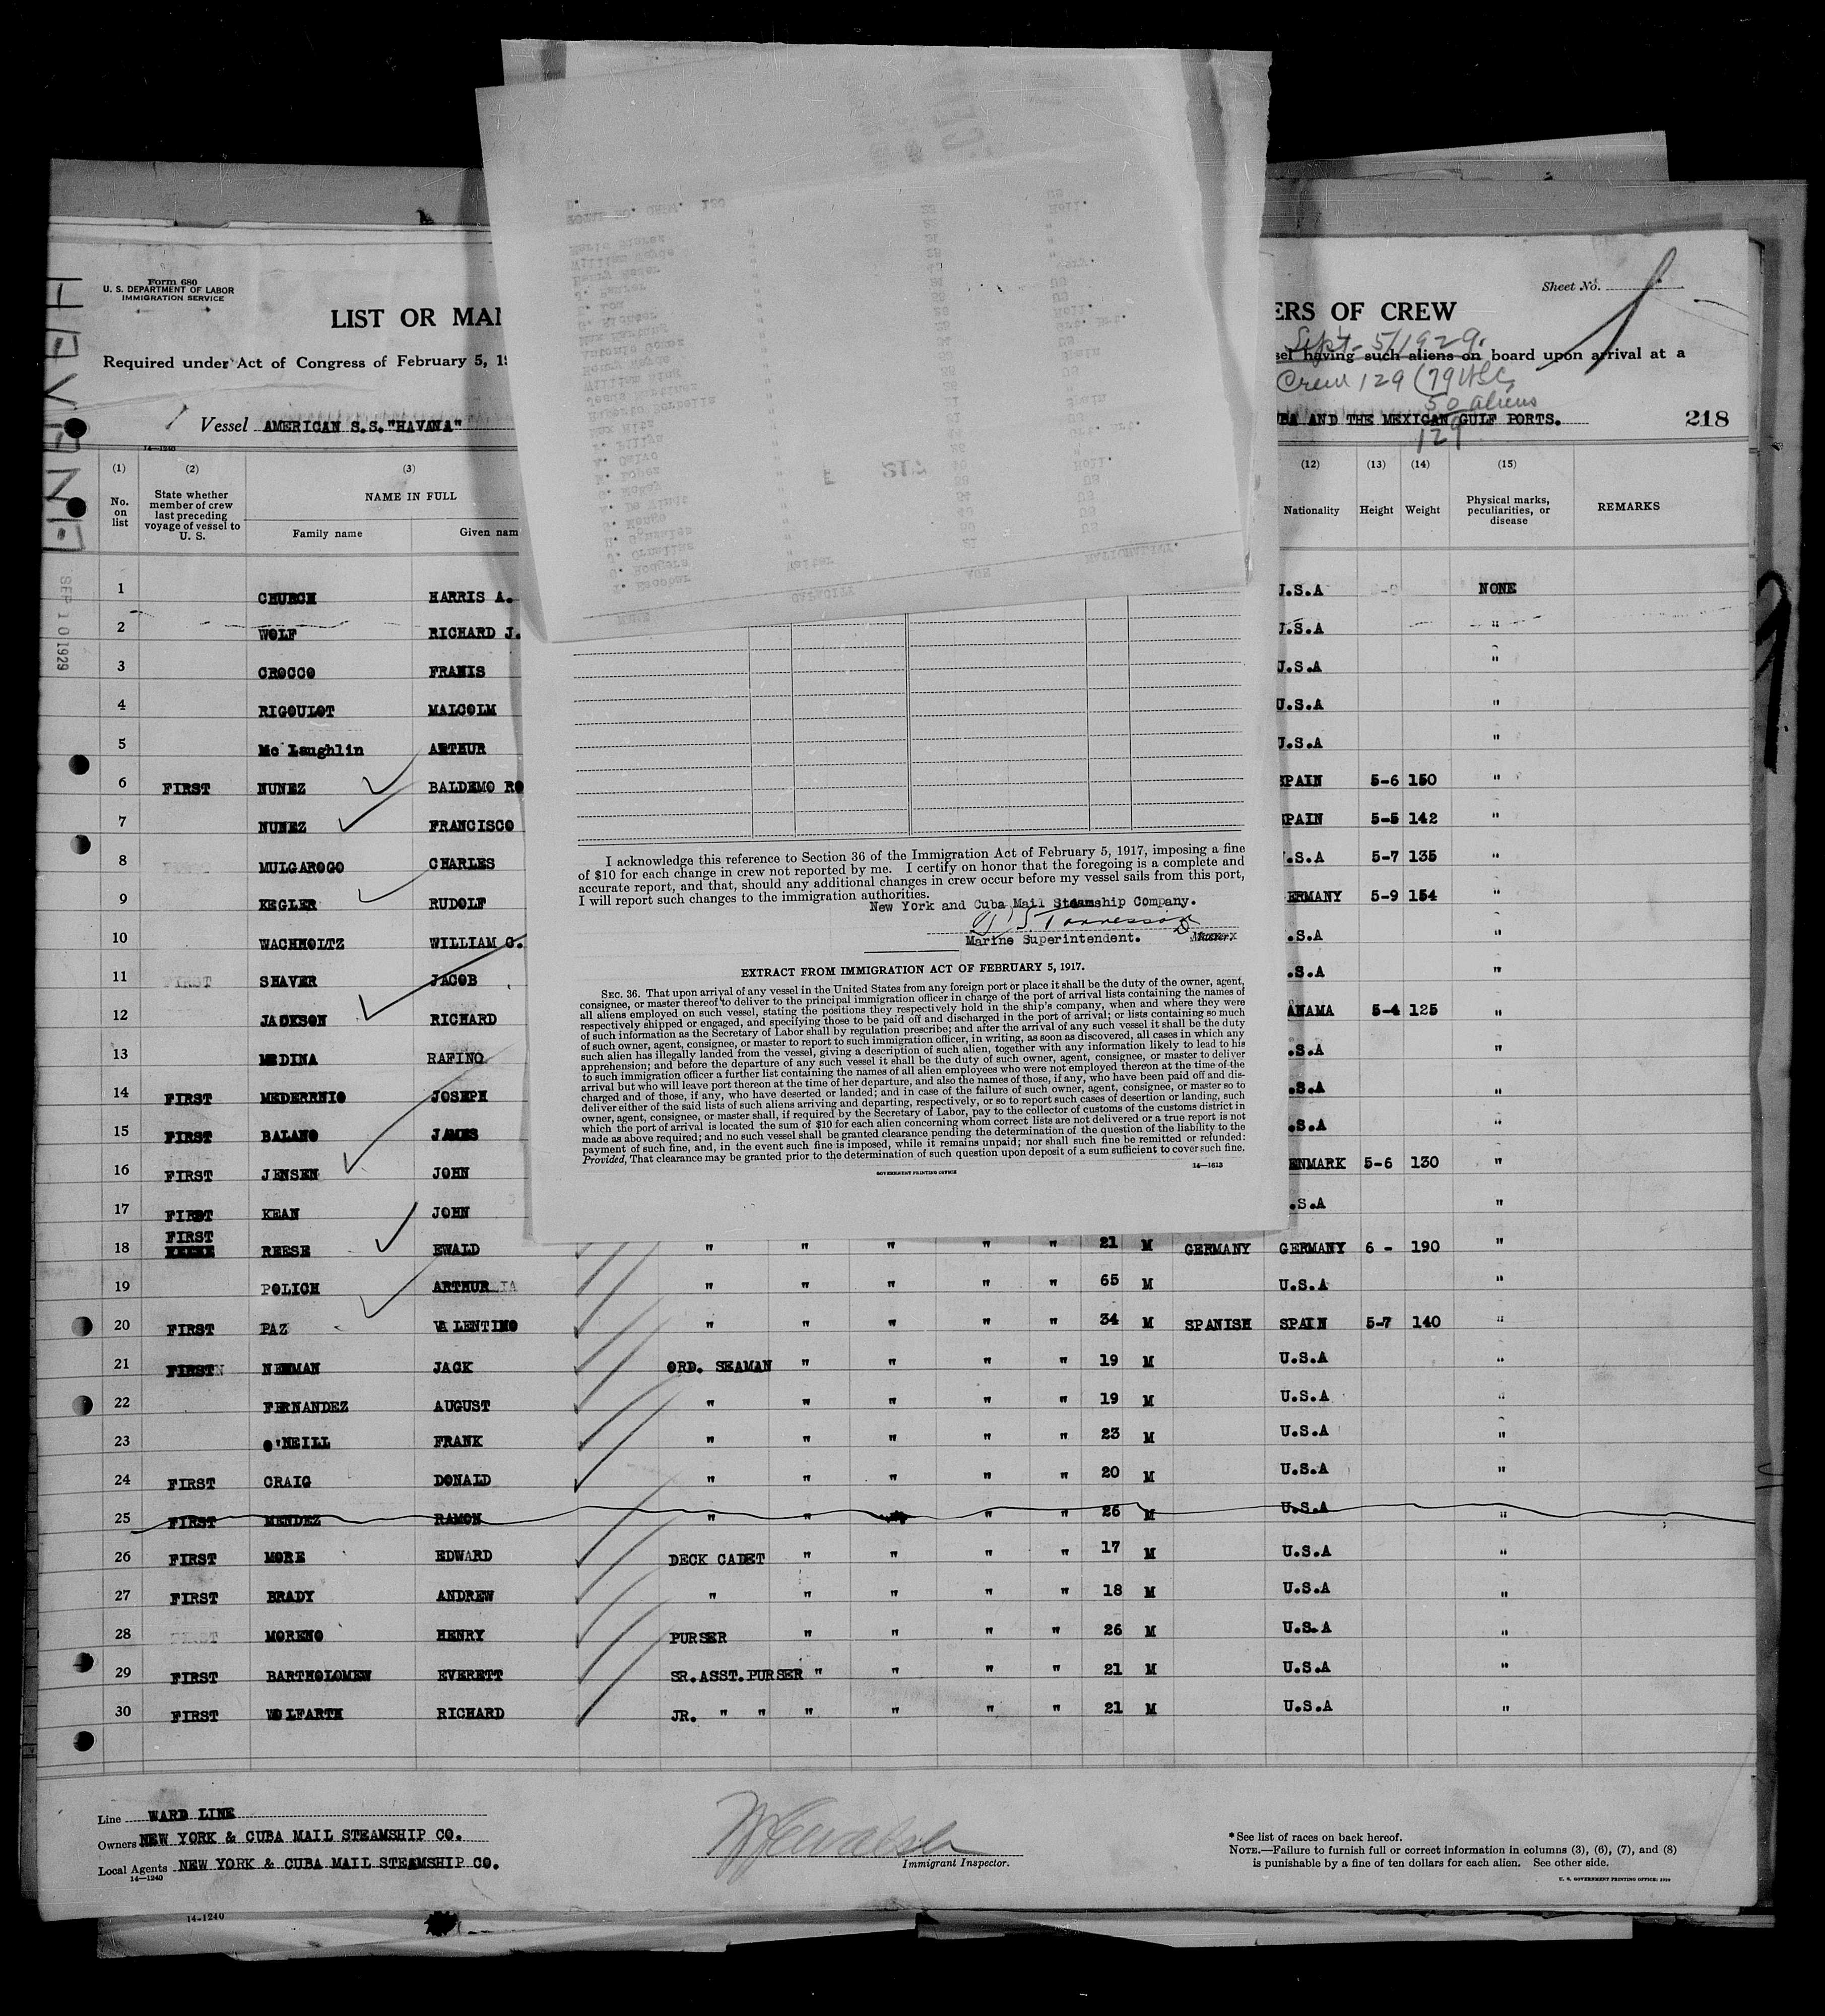 Form 680
U. S. DEPARTMENT OF LABOR
IMMIGRATION SERVICE
Sheet No.
LIST OR MAN
ERS OF CREW
Sept-5/1929.
Required under Act of Congress of February 5, 19
sel having such aliens on board upon arrival at a
Crew 129 (79 USC,
50 aliens
129
Vessel AMERICAN S.S."HAVANA"
BA AND THE MEXICAN GULF PORTS.
218
HAVANA
SEP 10 1929
14-1240
(1) (2) (3) (12) (13) (14) (15)
No. on list
State whether member of crew last preceding voyage of vessel to U. S.
NAME IN FULL
Family name Given nam
Nationality Height Weight
Physical marks, peculiarities, or disease
REMARKS
1 CHURCH HARRIS A. U.S.A NONE
2 WOLF RICHARD J. U.S.A "
3 CROCCO FRANIS U.S.A "
4 RIGOULOT MALCOLM U.S.A "
5 Mc Laughlin ARTHUR U.S.A "
6 FIRST NUNEZ BALDEMO RO SPAIN 5-6 150 "
7 NUNEZ FRANCISCO SPAIN 5-5 142 "
8 MULGAROGO CHARLES .S.A 5-7 135 "
9 KEGLER RUDOLF GERMANY 5-9 154 "
10 WACHHOLTZ WILLIAM G. .S.A "
11 FIRST SHAVER JACOB .S.A "
12 JACKSON RICHARD ANAMA 5-4 125 "
13 MEDINA RAFINO .S.A "
14 FIRST MEDERRNIO JOSEPH .S.A "
15 FIRST BALANO JAMES .S.A "
16 FIRST JENSEN JOHN ENMARK 5-6 130 "
17 FIRST KEAN JOHN .S.A "
18 FIRST REESE EWALD " " " " " 21 M GERMANY GERMANY 6 - 190 "
19 POLICH ARTHUR " " " " " 65 M U.S.A "
20 FIRST PAZ VALENTINO " " " " " 34 M SPANISH SPAIN 5-7 140 "
21 FIRST NEWMAN JACK ORD. SEAMAN " " " " 19 M U.S.A "
22 FERNANDEZ AUGUST " " " " " 19 M U.S.A "
23 O'NEILL FRANK " " " " " 23 M U.S.A "
24 FIRST CRAIG DONALD " " " " " 20 M U.S.A "
25 FIRST MENDEZ RAMON " " " " 26 M U.S.A "
26 FIRST MORE EDWARD DECK CADET " " " " 17 M U.S.A "
27 FIRST BRADY ANDREW " " " " " 18 M U.S.A "
28 FIRST MORENO HENRY PURSER " " " " 26 M U.S.A "
29 FIRST BARTHOLOMEW EVERETT SR.ASST.PURSER " " " " 21 M U.S.A "
30 FIRST WOLFARTH RICHARD JR. " " " " " " 21 M U.S.A "
E 217
I acknowledge this reference to Section 36 of the Immigration Act of February 5, 1917, imposing a fine
of $10 for each change in crew not reported by me. I certify on honor that the foregoing is a complete and
accurate report, and that, should any additional changes in crew occur before my vessel sails from this port,
I will report such changes to the immigration authorities.
New York and Cuba Mail Steamship Company.
Marine Superintendent.
EXTRACT FROM IMMIGRATION ACT OF FEBRUARY 5, 1917.
SEC. 36. That upon arrival of any vessel in the United States from any foreign port or place it shall be the duty of the owner, agent,
consignee, or master thereof to deliver to the principal immigration officer in charge of the port of arrival lists containing the names of
all aliens employed on such vessel, stating the positions they respectively hold in the ship's company, when and where they were
respectively shipped or engaged, and specifying those to be paid off and discharged in the port of arrival; or lists containing so much
of such information as the Secretary of Labor shall by regulation prescribe; and after the arrival of any such vessel it shall be the duty
of such owner, agent, consignee, or master to report to such immigration officer, in writing, as soon as discovered, all cases in which any
such alien has illegally landed from the vessel, giving a description of such alien, together with any information likely to lead to his
apprehension; and before the departure of any such vessel it shall be the duty of such owner, agent, consignee, or master to deliver
to such immigration officer a further list containing the names of all alien employees who were not employed thereon at the time of the
arrival but who will leave port thereon at the time of her departure, and also the names of those, if any, who have been paid off and dis-
charged and of those, if any, who have deserted or landed; and in case of the failure of such owner, agent, consignee, or master so to
deliver either of the said lists of such aliens arriving and departing, respectively, or so to report such cases of desertion or landing, such
owner, agent, consignee, or master shall, if required by the Secretary of Labor, pay to the collector of customs of the customs district in
which the port of arrival is located the sum of $10 for each alien concerning whom correct lists are not delivered or a true report is not
made as above required; and no such vessel shall be granted clearance pending the determination of the question of the liability to the
payment of such fine, and, in the event such fine is imposed, while it remains unpaid; nor shall such fine be remitted or refunded:
Provided, That clearance may be granted prior to the determination of such question upon deposit of a sum sufficient to cover such fine.
GOVERNMENT PRINTING OFFICE
14—1613
Line WARD LINE
Owners NEW YORK & CUBA MAIL STEAMSHIP CO.
Local Agents NEW YORK & CUBA MAIL STEAMSHIP CO.
14—1240
Immigrant Inspector.
*See list of races on back hereof.
NOTE.—Failure to furnish full or correct information in columns (3), (6), (7), and (8)
is punishable by a fine of ten dollars for each alien. See other side.
U. S. GOVERNMENT PRINTING OFFICE: 1929
14-1240